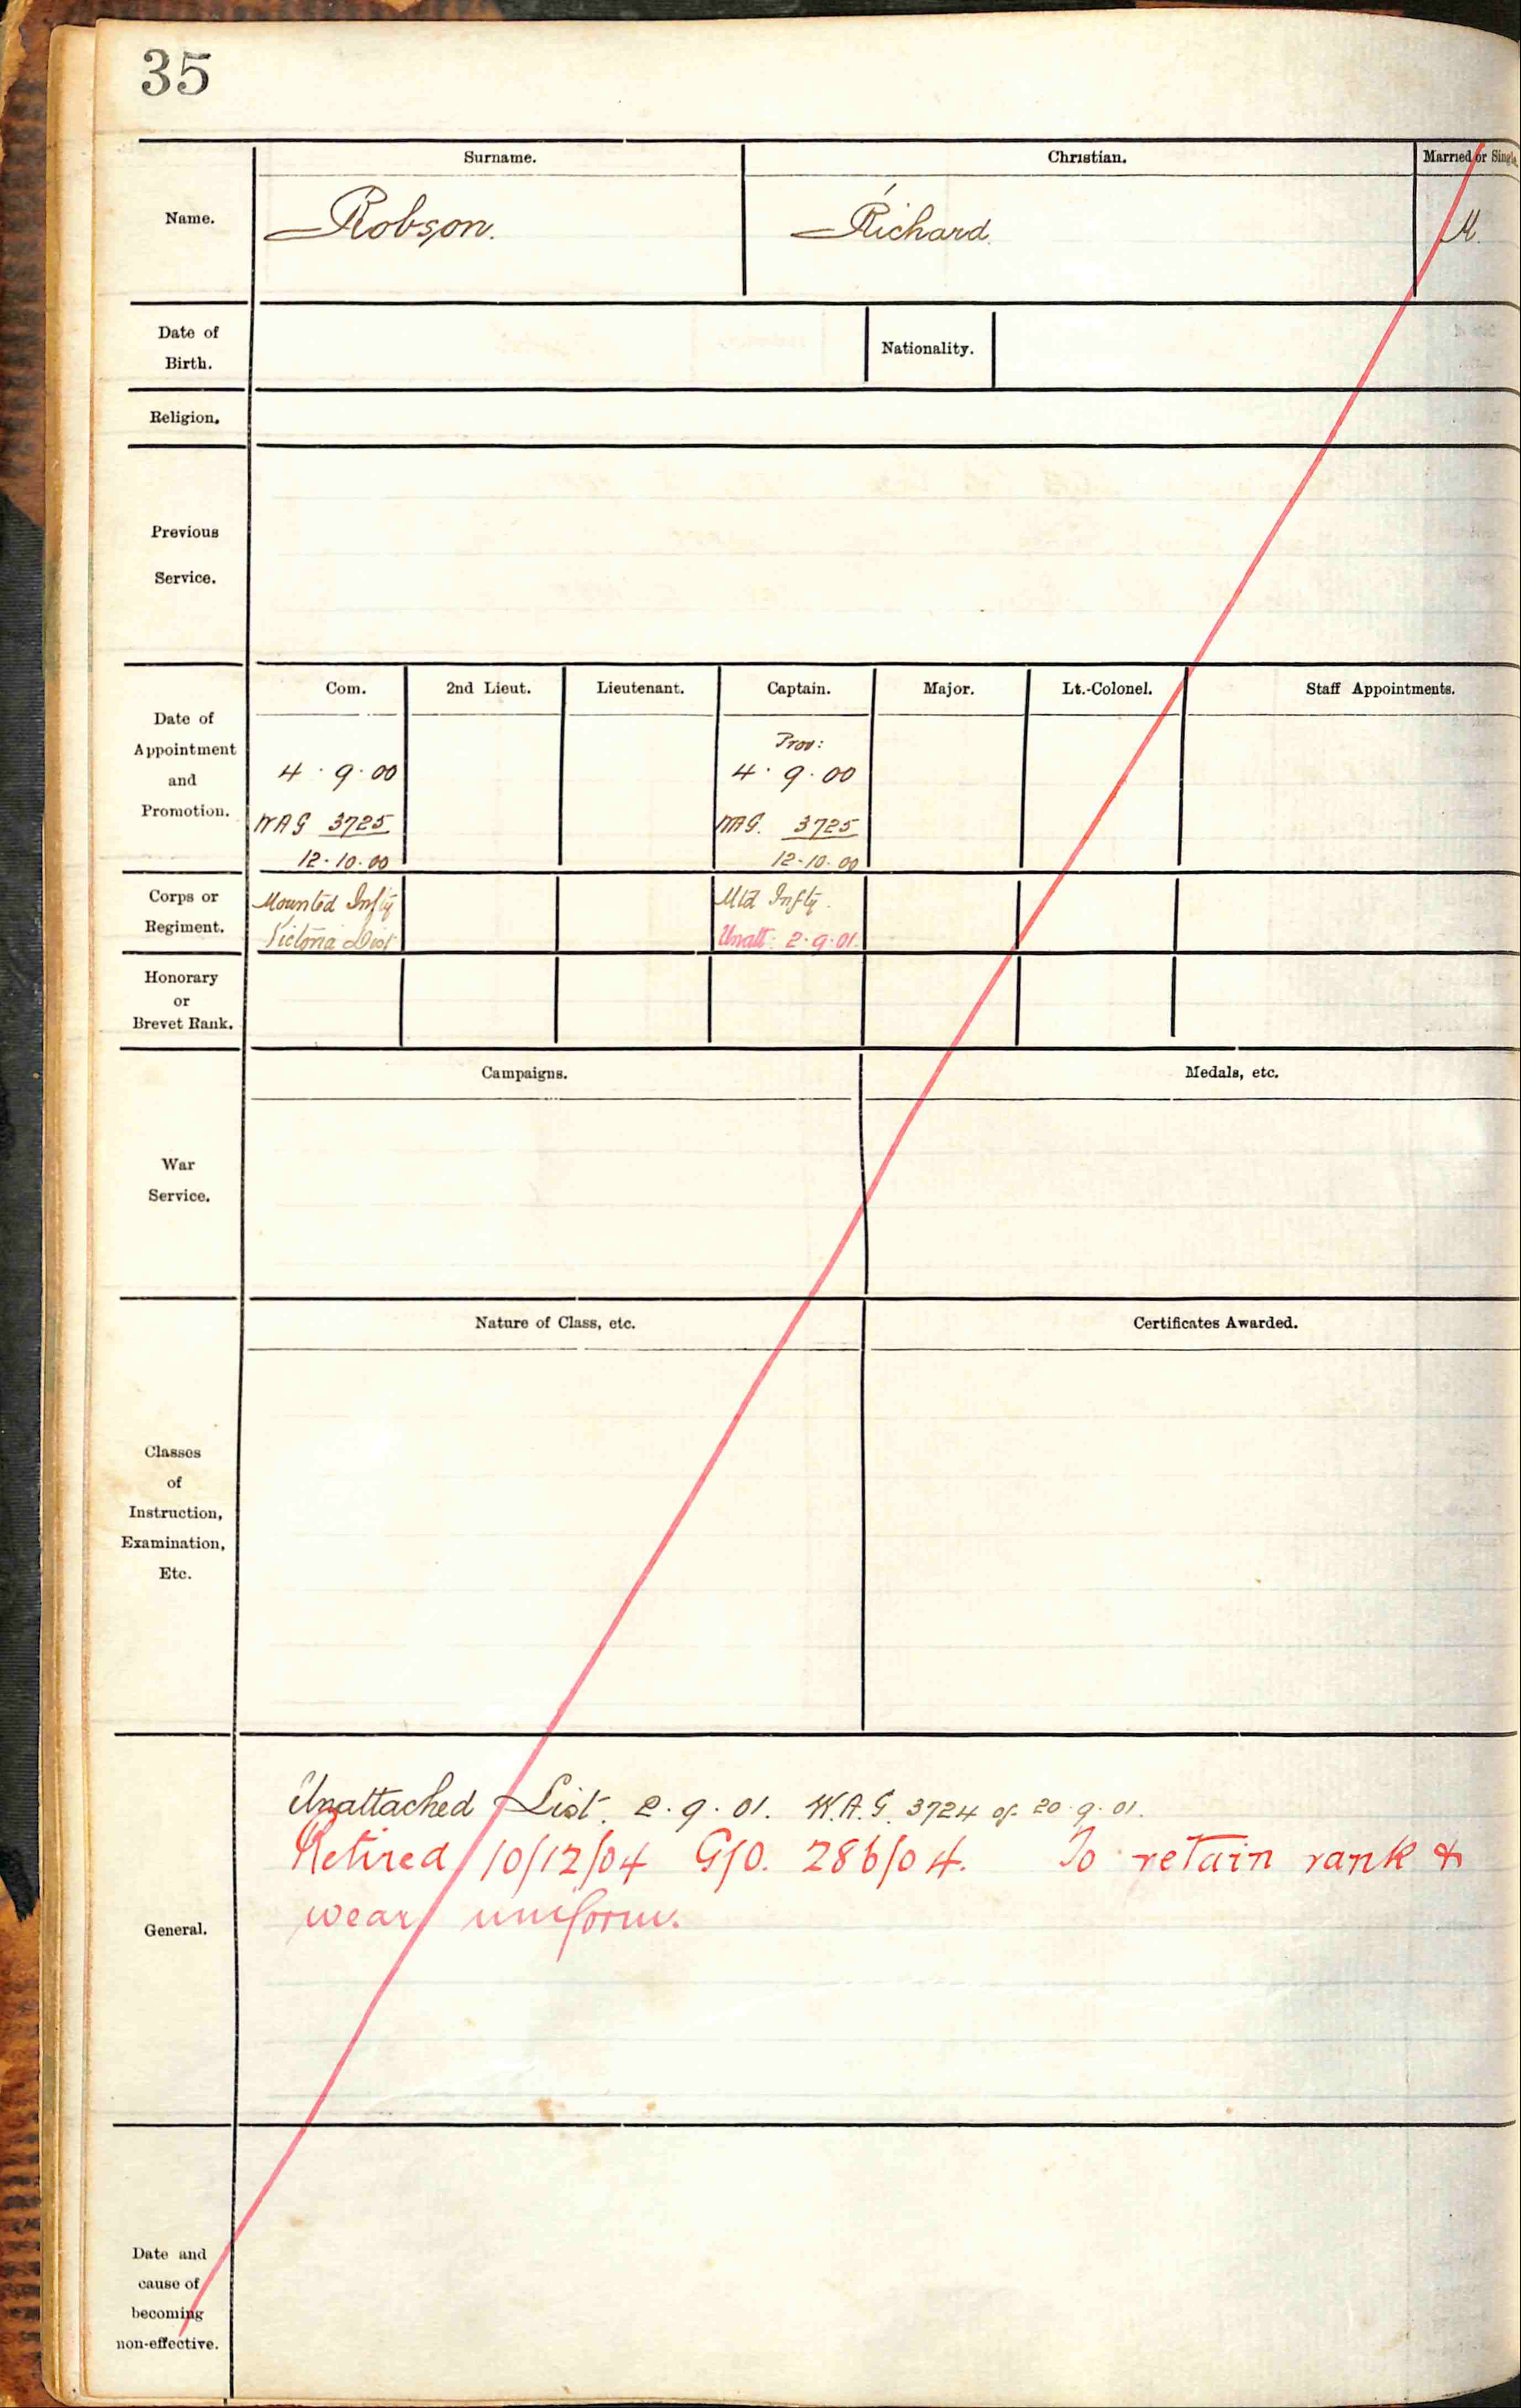 35
Surname. Christian. Married or Single.
Name. Robson. Richard. M.
Date of
Birth.
Nationality.
Religion.
Previous
Service.
Com. 2nd Lieut. Lieutenant. Captain. Major. Lt.-Colonel. Staff Appointments.
Date of
Appointment
and
Promotion.
4.9.00
WAG 3725
12.10.00
Prov:
4.9.00
WAG. 3725
12.10.00
Corps or
Regiment.
Mounted Infty
Victoria Dist
Mtd Infty.
Unatt: 2.9.01.
Honorary
or
Brevet Rank.
Campaigns. Medals, etc.
War
Service.
Nature of Class, etc. Certificates Awarded.
Classes
of
Instruction,
Examination,
Etc.
General.
Unattached List. 2.9.01. W.A.G. 3724 of 20.9.01.
Retired 10/12/04 G/O. 286/04. To retain rank &
wear uniform.
Date and
cause of
becoming
non-effective.